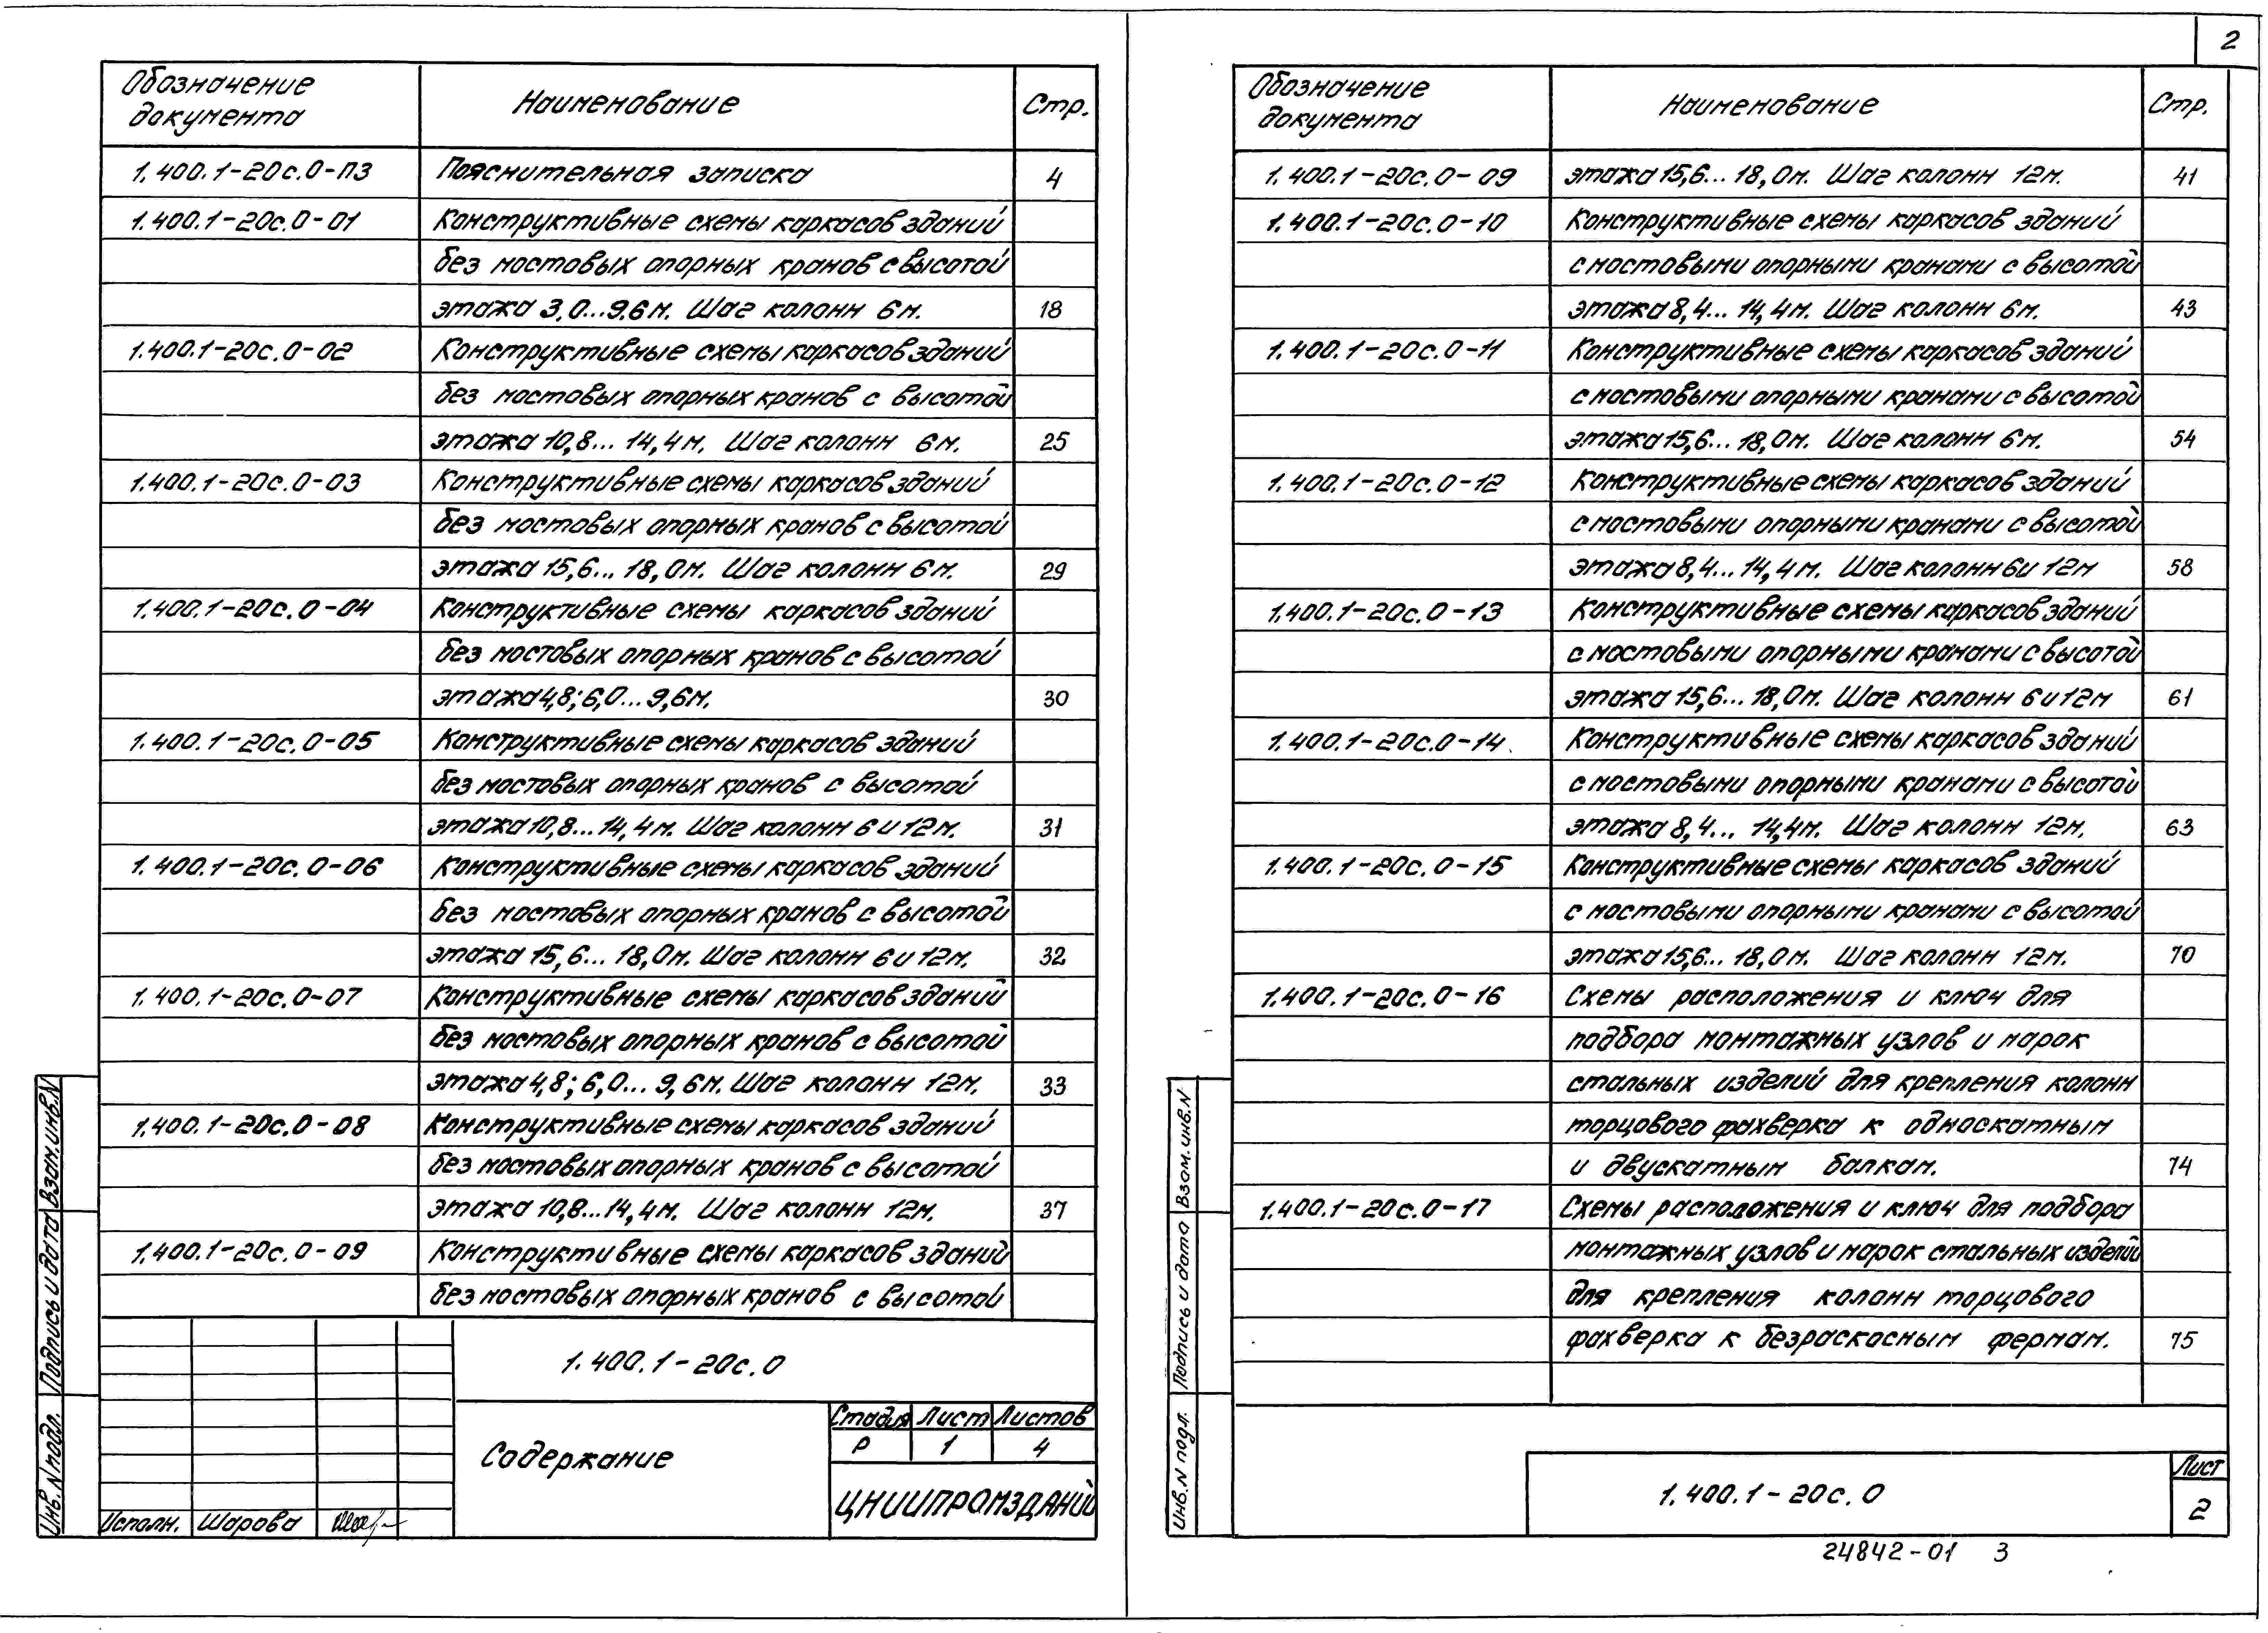 Обозначение документа Наименование Стр.
1.400.1-20с.0-ПЗ Пояснительная записка 4
1.400.1-20с.0-01 Конструктивные схемы каркасов зданий
без мостовых опорных кранов с высотой
этажа 3,0...9,6м. Шаг колонн 6м. 18
1.400.1-20с.0-02 Конструктивные схемы каркасов зданий
без мостовых опорных кранов с высотой
этажа 10,8...14,4м. Шаг колонн 6м. 25
1.400.1-20с.0-03 Конструктивные схемы каркасов зданий
без мостовых опорных кранов с высотой
этажа 15,6...18,0м. Шаг колонн 6м. 29
1.400.1-20с.0-04 Конструктивные схемы каркасов зданий
без мостовых опорных кранов с высотой
этажа 4,8; 6,0...9,6м. 30
1.400.1-20с.0-05 Конструктивные схемы каркасов зданий
без мостовых опорных кранов с высотой
этажа 10,8...14,4м. Шаг колонн 6 и 12м. 31
1.400.1-20с.0-06 Конструктивные схемы каркасов зданий
без мостовых опорных кранов с высотой
этажа 15,6...18,0м. Шаг колонн 6 и 12м. 32
1.400.1-20с.0-07 Конструктивные схемы каркасов зданий
без мостовых опорных кранов с высотой
этажа 4,8; 6,0...9,6м. Шаг колонн 12м. 33
1.400.1-20с.0-08 Конструктивные схемы каркасов зданий
без мостовых опорных кранов с высотой
этажа 10,8...14,4м. Шаг колонн 12м. 37
1.400.1-20с.0-09 Конструктивные схемы каркасов зданий
без мостовых опорных кранов с высотой
1.400.1-20с.0
Содержание
Стадия Лист Листов
Р 1 4
ЦНИИПРОМЗДАНИЙ
Исполн. Шарова
Взам.инв.N
Подпись и дата
Инв.N подл.
2
Обозначение документа Наименование Стр.
1.400.1-20с.0-09 этажа 15,6...18,0м. Шаг колонн 12м. 41
1.400.1-20с.0-10 Конструктивные схемы каркасов зданий
с мостовыми опорными кранами с высотой
этажа 8,4...14,4м. Шаг колонн 6м. 43
1.400.1-20с.0-11 Конструктивные схемы каркасов зданий
с мостовыми опорными кранами с высотой
этажа 15,6...18,0м. Шаг колонн 6м. 54
1.400.1-20с.0-12 Конструктивные схемы каркасов зданий
с мостовыми опорными кранами с высотой
этажа 8,4...14,4м. Шаг колонн 6 и 12м 58
1.400.1-20с.0-13 Конструктивные схемы каркасов зданий
с мостовыми опорными кранами с высотой
этажа 15,6...18,0м. Шаг колонн 6 и 12м 61
1.400.1-20с.0-14 Конструктивные схемы каркасов зданий
с мостовыми опорными кранами с высотой
этажа 8,4... 14,4м. Шаг колонн 12м. 63
1.400.1-20с.0-15 Конструктивные схемы каркасов зданий
с мостовыми опорными кранами с высотой
этажа 15,6...18,0м. Шаг колонн 12м. 70
1.400.1-20с.0-16 Схемы расположения и ключ для
подбора монтажных узлов и марок
стальных изделий для крепления колонн
торцового фахверка к односкатным
и двускатным балкам. 74
1.400.1-20с.0-17 Схемы расположения и ключ для подбора
монтажных узлов и марок стальных изделий
для крепления колонн торцового
фахверка к безраскасным фермам. 75
1.400.1-20с.0
Лист
2
Взам.инв.N
Подпись и дата
Инв.N подл.
24842-01 3